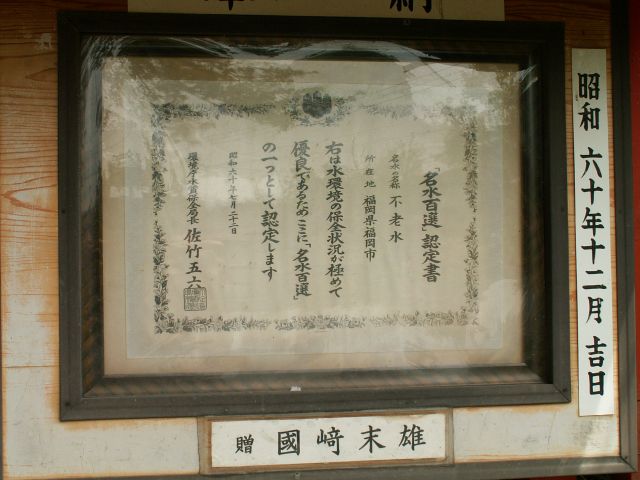 「名水百選」認定書
名水の名称 不老水
所在地 福岡県福岡市
右は水環境の保全状況が極めて
優良であるためここに「名水百選」
の一つとして認定します
昭和六十年七月二十二日
環境庁水質保全局長 佐竹五六
昭和 六十年十二月 吉日
贈 國﨑末雄